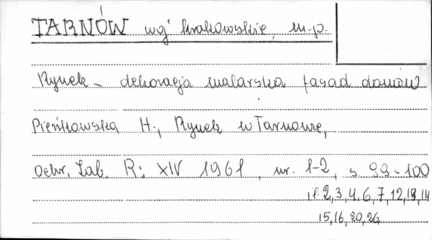 TARNÓW woj. krakowskie, m.p.
Rynek - dekoracja malarska fasad domów
Pieńkowska H., Rynek w Tarnowie,
Ochr. Zab. R: XIV 1961, nr. 1-2, s 99-100
il. 2, 3, 4, 6, 7, 12, 13, 14
15, 16, 20, 26